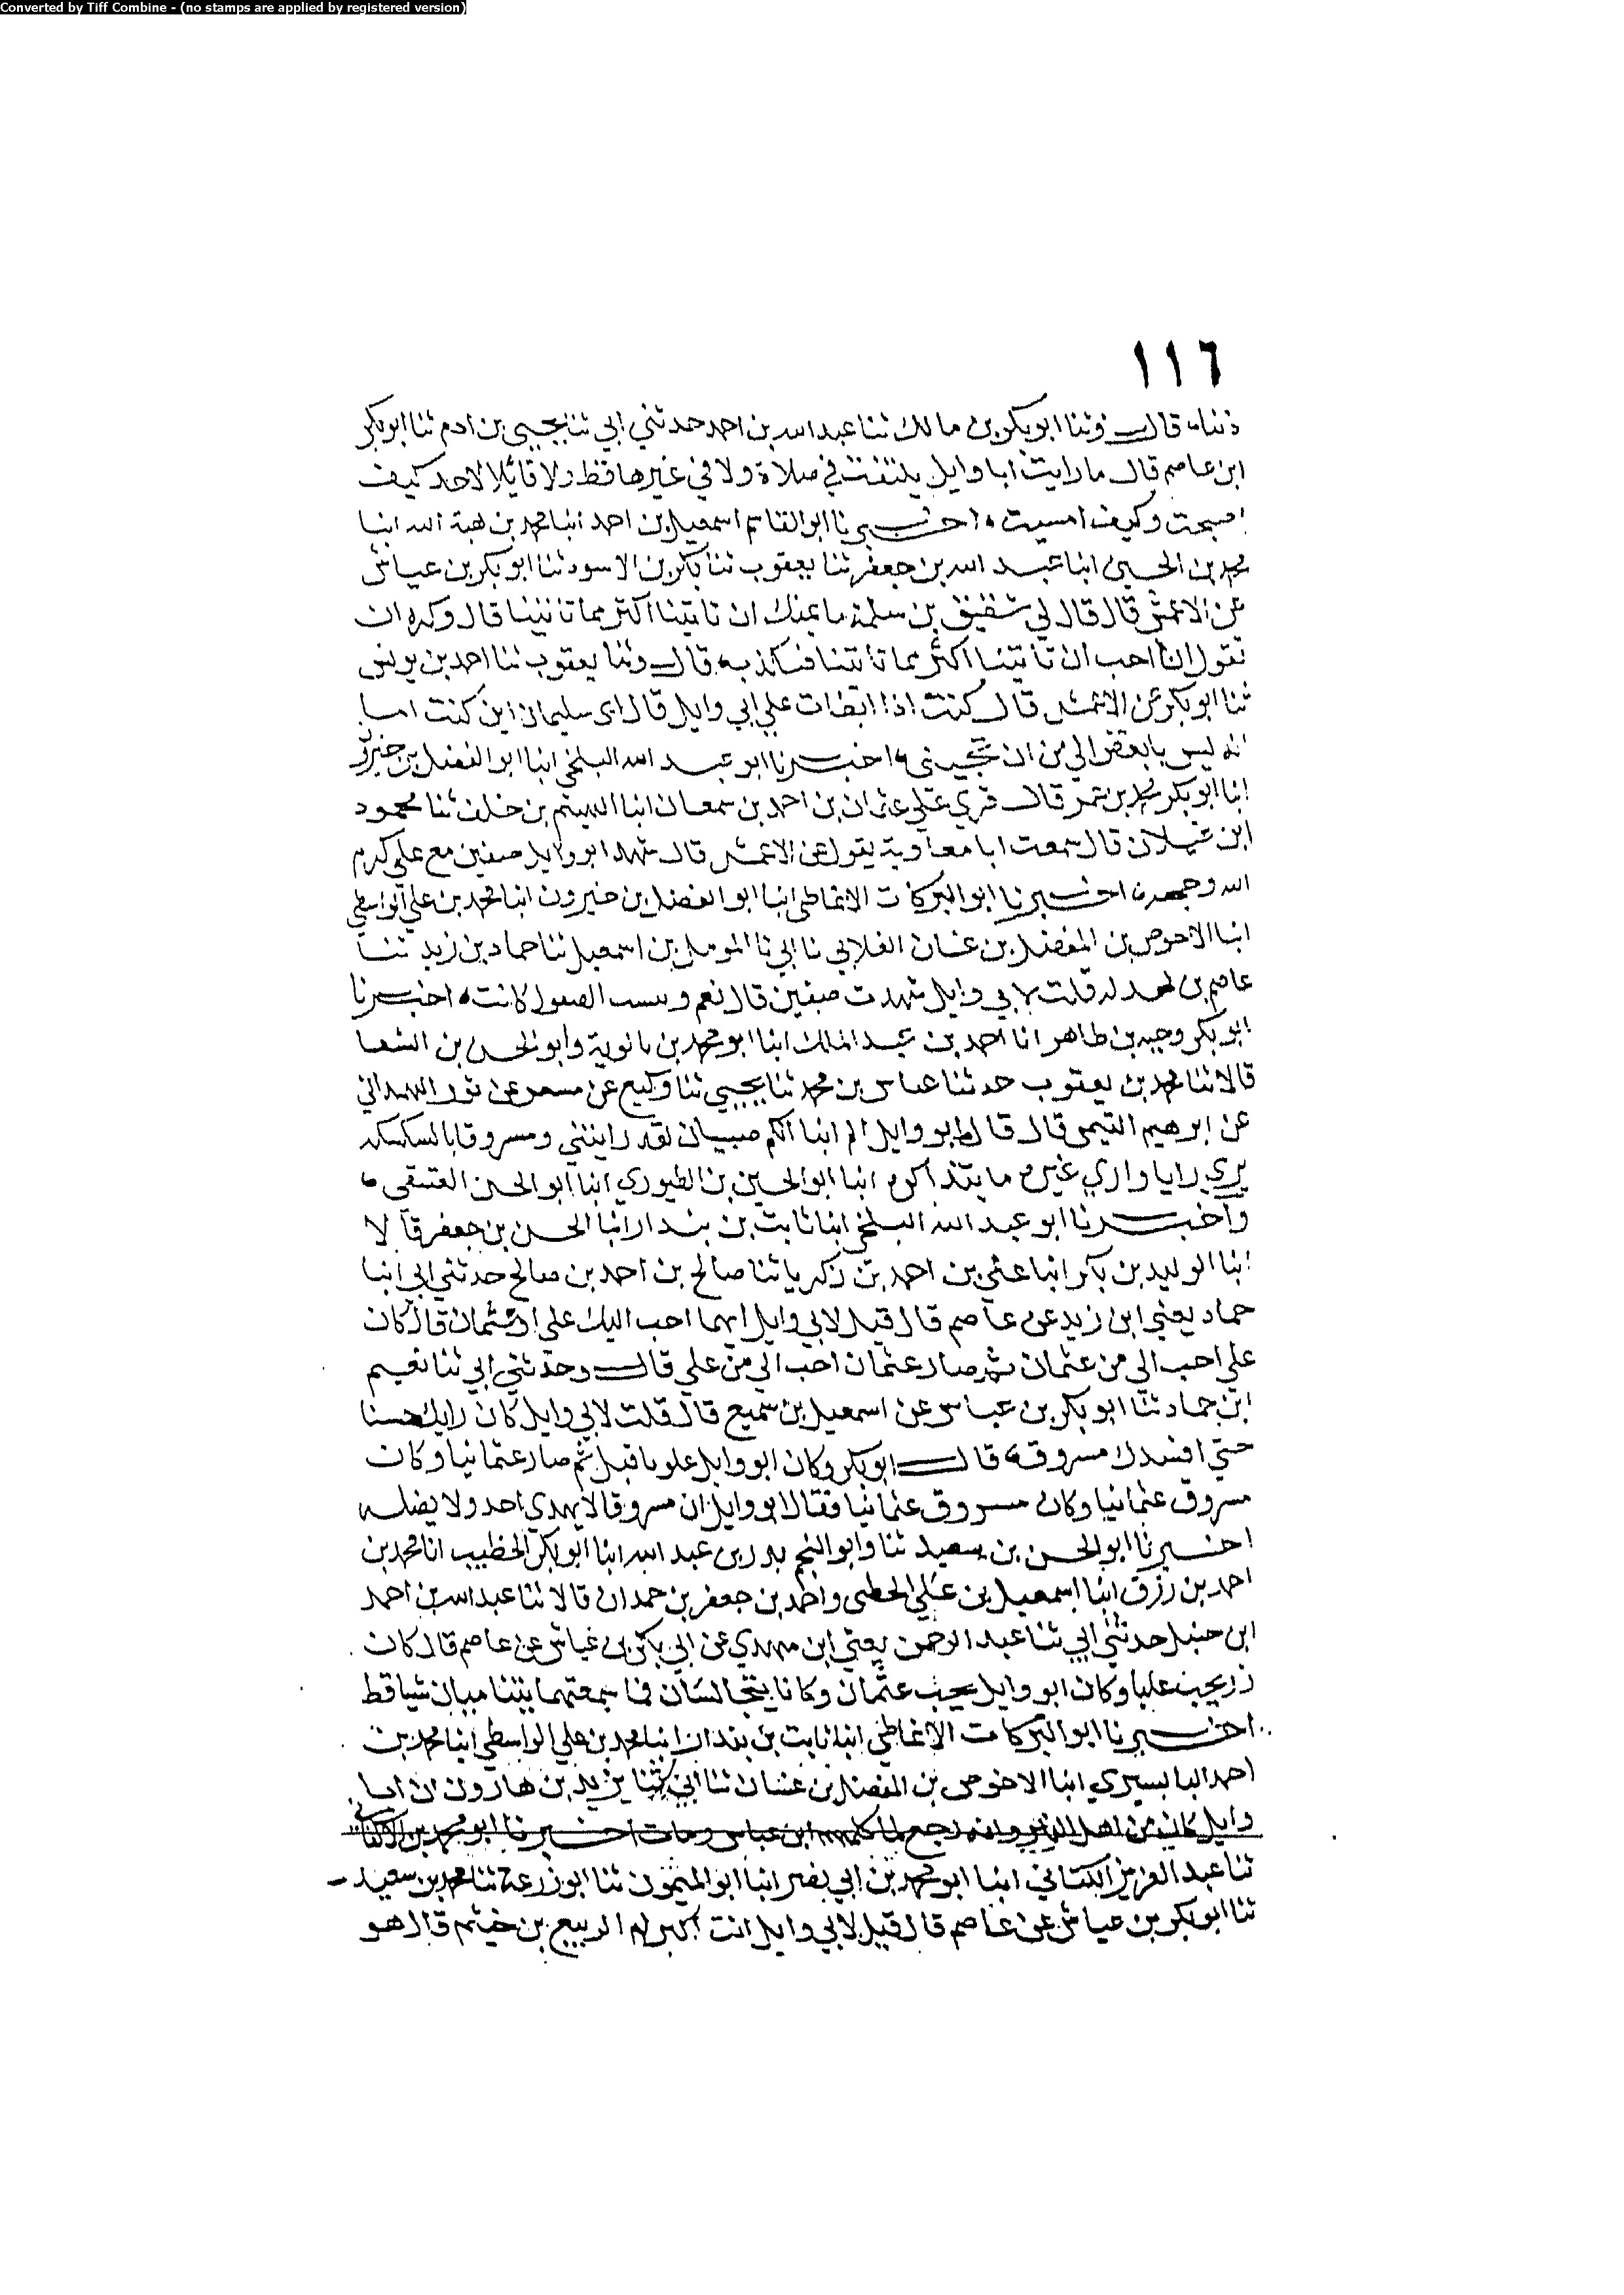 Converted by Tiff Combine - (no stamps are applied by registered version)
١١٦
ذنناه قال وثنا ابو بكر بن مالك ثنا عبد الله بن احمد حدثني ابي ثنا يحيى بن ادم ثنا ابو بكر
ابن عاصم قال ما رايت ابا وايل يلتفت في صلاة ولا في غيرها قط ولا قائلا لاحد كيف
اصبحت وكيف امسيت اخبرنا ابو القاسم اسمعيل بن احمد انبا محمد بن هبة الله انبا
محمد بن الحسين انبا عبد الله بن جعفر ثنا يعقوب ثنا بكر بن الاسود ثنا ابو بكر بن عياش
عن الاعمش قال قال لي شقيق بن سلمة ما يمنعك ان تاتينا اكثر مما تاتينا قال وكره ان
تقول انا احب ان تاتينا اكثر مما تاتينا فيكذبه قال وثنا يعقوب ثنا احمد بن يونس
ثنا ابو بكر عن الاعمش قال كنت اذا ابطات علي ابي وايل قال اي سليمان اين كنت اما
انه ليس بابغض الي من ان تجيني اخبرنا ابو عبد الله البلخي انبا ابو الفضل بن خيرون
انبا ابو بكر محمد بن عمر قال قري علي عثمان بن احمد بن سمعان انبا الهيثم بن خلف ثنا محمود
ابن غيلان قال سمعت ابا معاوية يقول عن الاعمش قال شهد ابو وايل صفين مع علي كرم
الله وجهه اخبرنا ابو البركات الانماطي انبا ابو الفضل بن خيرون انبا محمد بن علي الواسطي
انبا الاحوص بن المفضل بن غسان الغلابي نا ابي نا المومل بن اسمعيل ثنا حماد بن زيد ثنا
عاصم بن بهدلة قلت لابي وايل شهدت صفين قال نعم وبيست الصفون كانت اخبرنا
ابو بكر وجيه بن طاهر انا احمد بن عبد الملك انبا ابو محمد بن بالوية وابو الحسن بن السقا
قالا ثنا محمد بن يعقوب حدثنا عباس بن محمد ثنا يحيى ثنا وكيع عن مسعر عن ثور الهمداني
عن ابرهيم التيمي قال قال ابو وايل الم ابنا انكم صبيان لقد رايتني ومسروقا بالسلسلة
يري رايا واري غيره ما يتذاكره انبا ابو الحسين بن الطيوري انبا ابو الحسن العتيقي
واخبرنا ابو عبد الله البلخي انبا ثابت بن بندار انبا الحسن بن جعفر قالا
انبا الوليد بن بكر انبا علي بن احمد بن زكريا ثنا صالح بن احمد بن صالح حدثني ابي انبا
حماد يعني ابن زيد عن عاصم قال قيل لابي وايل ايهما احب اليك علي او عثمان قال كان
علي احب الي من عثمان ثم صار عثمان احب الي من علي قال وحدثني ابي ثنا نعيم
ابن حماد ثنا ابو بكر بن عياس عن اسمعيل بن سميع قال قلت لابي وايل كان رايك حسنا
حتي افسدك مسروق قال ابو بكر وكان ابو وايل علويا قبل ثم صار عثمانيا وكان
مسروق عثمانيا وكان مسروق عثمانيا فقال ابو وايل ان مسروقا لا يهدي احد ولا يضله
اخبرنا ابو الحسن بن سعيد ثنا وابو النجم بدر بن عبد الله انبا ابو بكر الخطيب انا محمد بن
احمد بن رزق انبا اسمعيل بن علي الخطبي واحمد بن جعفر بن حمدان قالا ثنا عبد الله بن احمد
ابن حنبل حدثني ابي ثنا عبد الرحمن يعني ابن مهدي عن ابي بكر بن عياش عن عاصم قال كان
زر يحب عليا وكان ابو وايل يحب عثمان وكانا يتجالسان فما سمعتهما يتناميان شيا قط
اخبرنا ابو البركات الانماطي انبا ثابت بن بندار انبا محمد بن علي الواسطي انبا محمد بن
احمد البابسيري انبا الاحوص بن المفضل بن غسان ثنا ابي ثنا يزيد بن هارون ان ابا
وايل كان من اهل النهر وانه رجع لما كلمهم ابن عباس ومات اخبرنا ابو محمد بن الاكفاني
ثنا عبد العزيز الكتاني انبا ابو محمد بن ابي نصر انبا ابو الميمون ثنا ابو زرعة ثنا محمد بن سعيد
ثنا ابو بكر بن عياش عن عاصم قال قيل لابي وايل انت اكبر ام الربيع بن خيثم قال هو